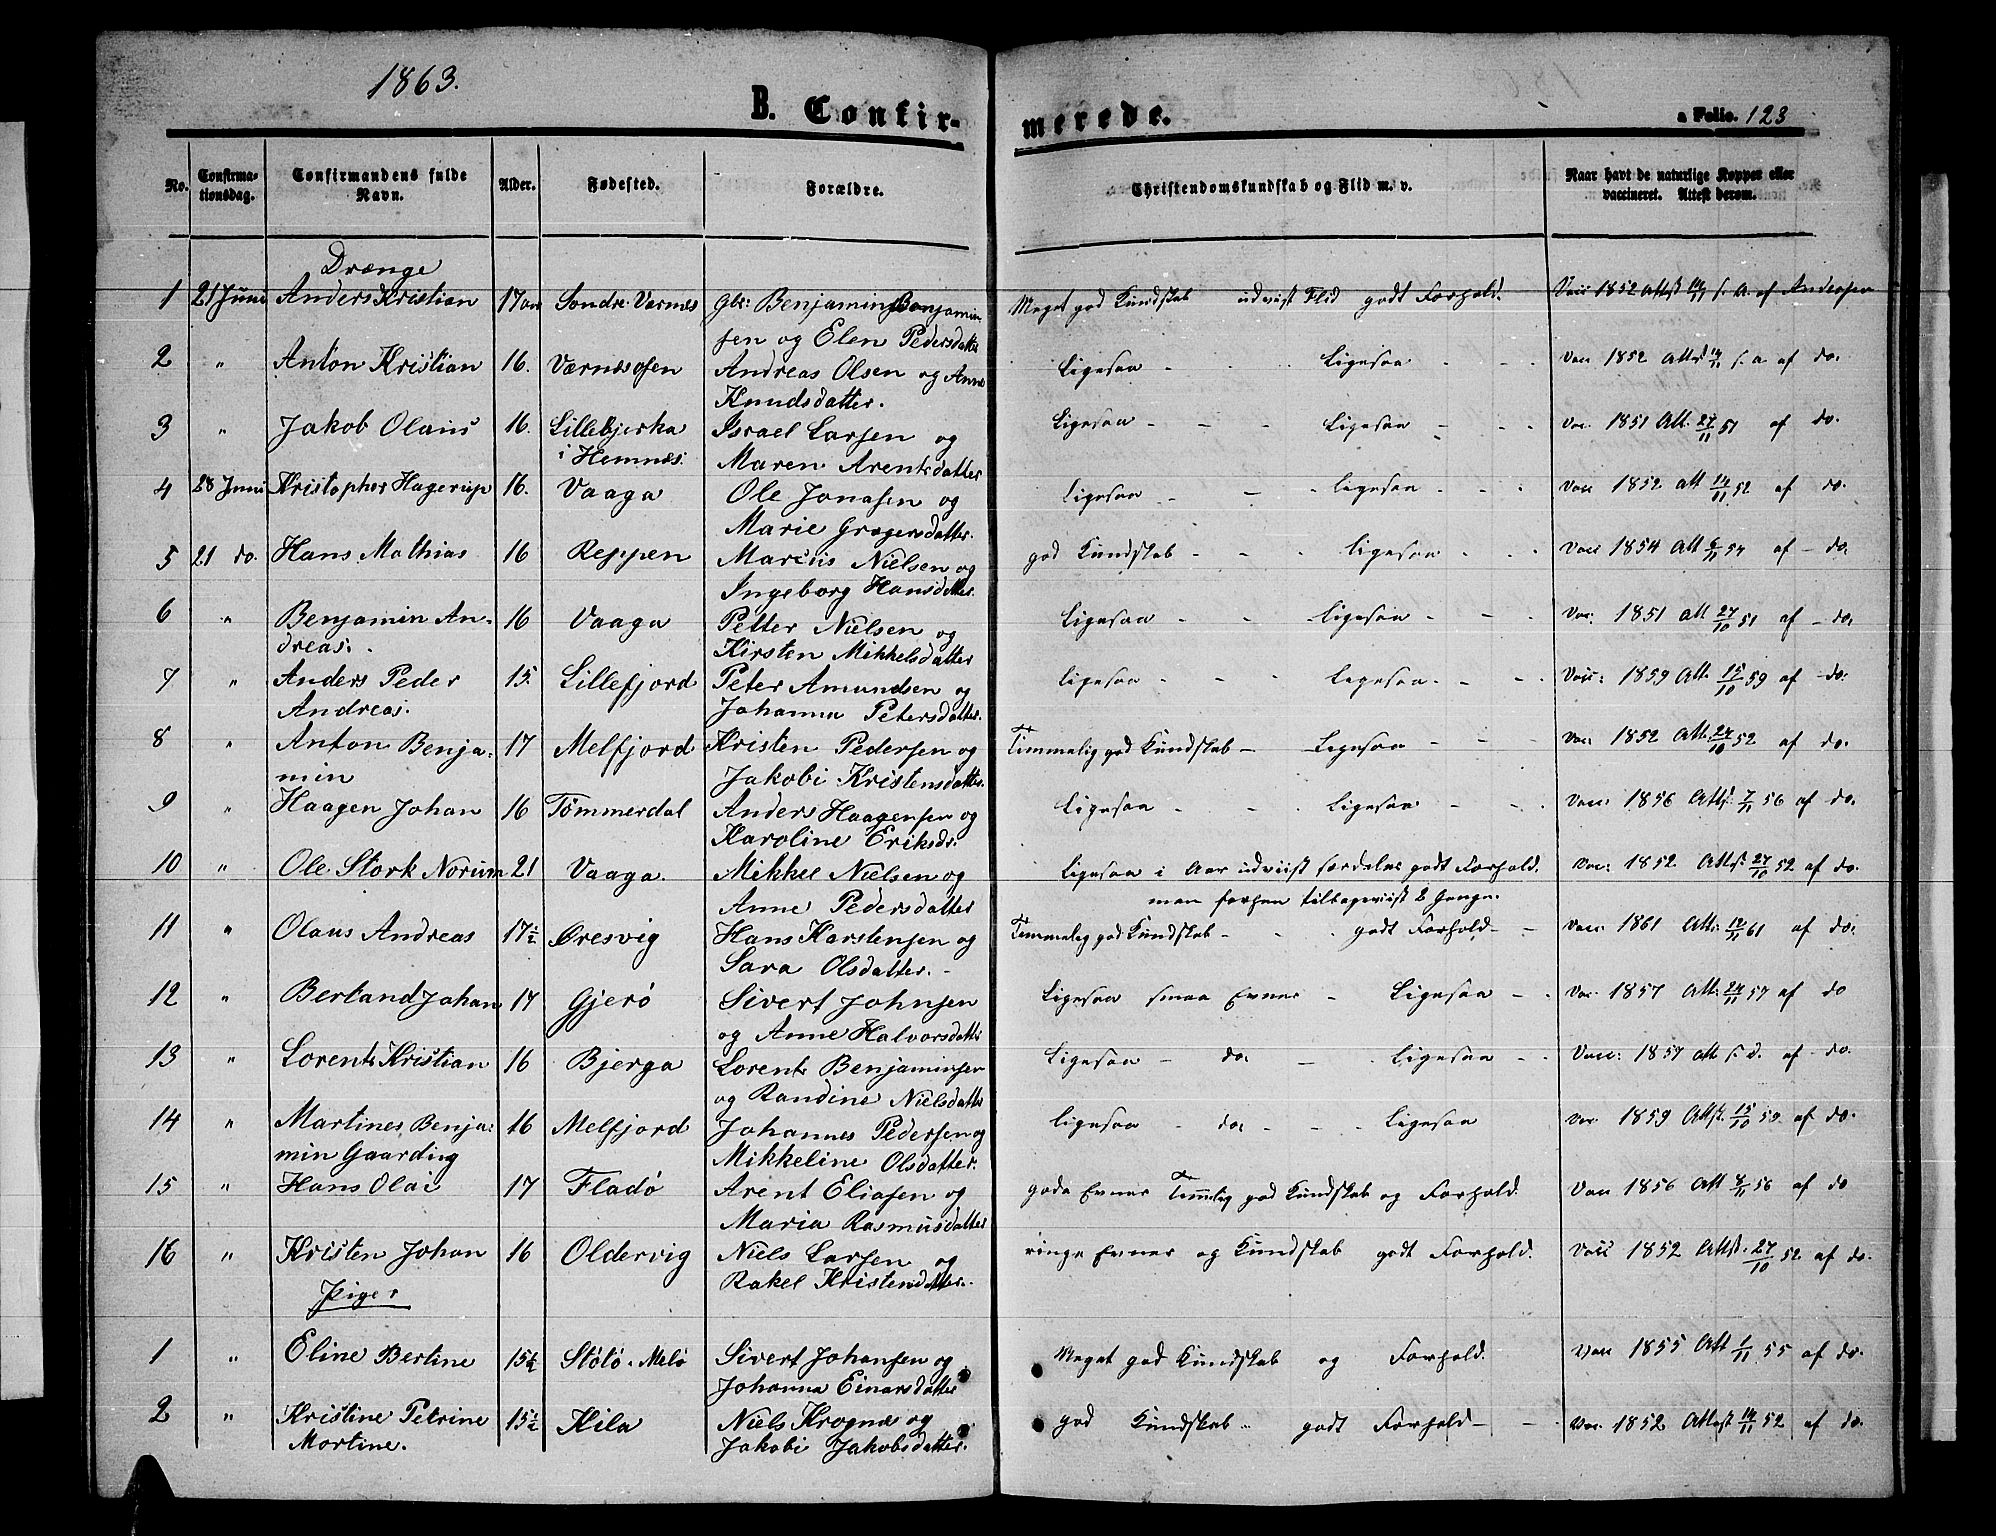 1863.
B. Confir-
merede.
a Folio. 123
No.
Confirma-
tionsdag.
Confirmandens fulde
Navn.
Alder.
Fødested.
Forældre.
Christendomskundskab og Flid m. v.
Naar havt de naturlige Kopper eller
vaccineret. Attest derom.
Drænge
1 21 Juni Anders Kristian 17 Søndre Værnes Gbr: Benjamin Benjamin Meget god Kundskab udviist Flid godt Forhold. Vacc 1852 Attst 14/11 s. A. af Andersen
sen og Elen Pedersdatter
2 " Anton Kristian 16. Værnesosen Andreas Olsen og Anne Ligesaa - - Ligesaa - - Vacc 1852 Attst 14/11 s. a af do.
Knudsdatter.
3 " Jakob Olaus 16. Lillebjerka Israel Larsen og Ligesaa - - Ligesaa - - Vac. 1851 Att. 27/11 51 af do.
i Hemnæs. Maren Arentsdatter
4 28 Juni Kristopher Hagerup 16. Vaaga Ole Jonasen og Ligesaa - - Ligesaa - - Vacc 1852 Att 14/11 52 af do.
Marie Gregersdatter
5 21 do. Hans Mathias 16 Reppen Marcus Nielsen og god Kundskab - - ligesaa - - Vacc 1854 Att 6/11 54 af - do.
Ingeborg Hansdatter.
6 " Benjamin An- 16 Vaaga Petter Nielsen og Ligesaa - - Ligesaa - - Vac: 1851 Att 27/10 51 af - do.
dreas. Kirsten Mikkelsdatter
7 " Anders Peder 15. Lillefjord Peter Amundsen og Ligesaa - - Ligesaa - - Vacc: 1859 Att. 15/10 59 af - do.
Andreas. Johanna Petersdatter.
8 " Anton Benja- 17 Melfjord Kristen Pedersen og Temmelig god Kundskab - Ligesaa - - Vac. 1852 Att. 27/10 52 af do.
min Jakobi Kristensdatter.
9 " Haagen Johan 16 Tømmerdal Anders Haagensen og Ligesaa - - Ligesaa - - Vacc: 1856 Attst. 7/11 56 af do.
Karoline Eriksdr.
10 " Ole Stork Norum 21 Vaaga. Mikkel Nielsen og Ligesaa i Aar udviist særdeles godt Forhold. Vac: 1852. Attst. 27/10 52 af do.
Anne Pedersdatter men forhen tilbageviist 2 Gange.
11 " Olaus Andreas 17½ Øresvig Hans Karstensen og Temmelig god Kundskab - - godt Forhold - - Vacc: 1861 Att: 12/11 61 af do.
Sara Olsdatter. -
12 " Bertand Johan 17 Gjerø Sivert Johnsen Ligesaa smaa Evner - Ligesaa - - Vac 1857 Att. 24/11 57 af do
og Anne Halvorsdatter
13 " Lorents Kristian 16 Bjerga Lorents Benjaminsen Ligesaa - do. - Ligesaa - - Vacc: 1857 Att s. d. af - do.
og Randine Nielsdatter
14 " Martines Benja- 16 Melfjord Johannes Pedersen og ligesaa - do. - - Ligesaa Vac 1859 Attst. 15/10 59. af do.
min Gaarding Mikkeline Olsdatter.
15 " Hans Olai 17 Fladø Arent Eliasen og gode Evner Temmelig god Kundskab og Forhold. Vacc 1856 Att 8/11 56 af do
Maria Rasmusdatter
16 " Kristen Johan 16 Oldervig Niels Larsen og ringe Evner og Kundskab godt Forhold. Vacc 1852 Attst. 27/10 52. af do.
Rakel Kristensdatter.
Piger
1 " Eline Bertine 15½ Støtø. Melø Sivert Johansen og Meget god Kundskab og Forhold. Vacc 1855 Att 1/11 55 af do.
Johanna Einarsdatter
2 " Kristine Petrine 15½ Kila Niels Krognæ og god Kundskab godt Forhold - - Vac 1852 Attest 14/11 52 af do.
Martine. Jakobi Jakobsdatter.